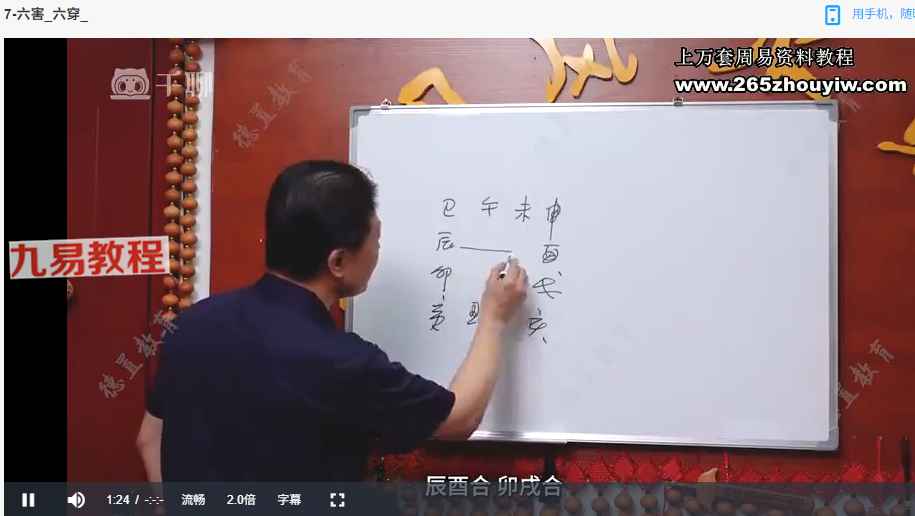 7-六害_六穿_
用手机，随
上万套周易资料教程
www.265zhouyiw.com
千聊
德置教育
九易教程
巳 午 未 申
辰 酉
卯 戌
寅 丑 亥
德置教育
辰酉合 卯戌合
1:24 / -:-:- 流畅 2.0倍 字幕